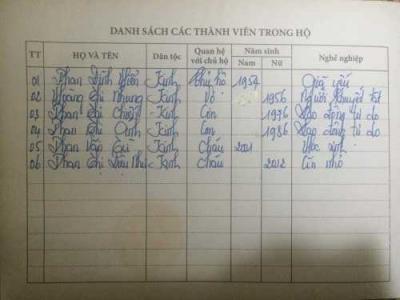 DANH SÁCH CÁC THÀNH VIÊN TRONG HỘ
TT HỌ VÀ TÊN Dân tộc Quan hệ với chủ hộ Năm sinh Nghề nghiệp
Nam Nữ
01 Phan Đình Kinh Chủ hộ 1954 Già yếu
02 Hoàng Thị Nhung Kinh Vợ 1956 Người khuyết tật
03 Phan Thị Kinh Con 1976 Lao động tự do
04 Phan Thị Kinh Con 1986 Lao động tự do
05 Phan Văn Kinh Cháu 2001 Học sinh
06 Phan Thị Kinh Cháu 2012 Còn nhỏ